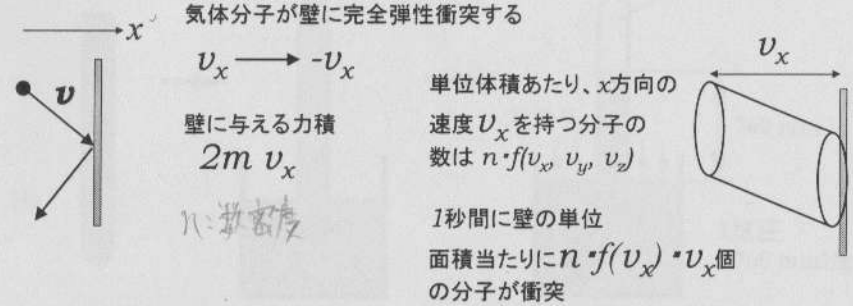 気体分子が壁に完全弾性衝突する
x
v
vₓ → -vₓ
壁に与える力積
2m vₓ
n:数密度
単位体積あたり、x方向の
速度vₓを持つ分子の
数は n・f(vₓ, vᵧ, v_z)
1秒間に壁の単位
面積当たりにn・f(vₓ)・vₓ個
の分子が衝突
vₓ